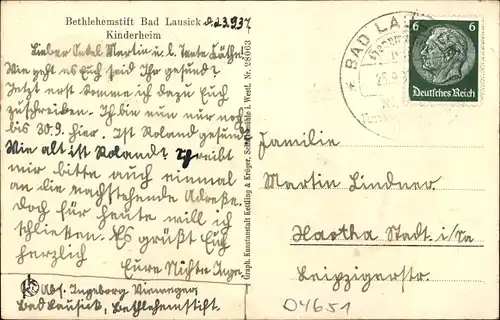 Bethlehemstift Bad Lausick
Kinderheim
23.9.37
Lieber Onkel Martin u. l. Tante Käthe!
Wie geht es Euch seid Ihr gesund?
Jetzt erst komme ich dazu Euch
zuschreiben. Ich bin nun nur noch
bis 30.9. hier. Ist Roland gesund
Wie alt ist Roland? Schreibt
mir bitte auch einmal
an die nachstehende Adresse.
Doch für heute will ich
schließen. Es grüßt Euch
herzlich
Eure Nichte Inge.
Abs. Ingeborg
Bad Lausick, Bethlehemstift.
Graph. Kunstanstalt Kettling & Krüger, Schalksmühle i. Westf. Nr. 28063
BAD LAUSICK
6 6
Deutsches Reich
Familie
Martin Lindner
Hartha Stadt i/Sa
Leipzigerstr.
04651